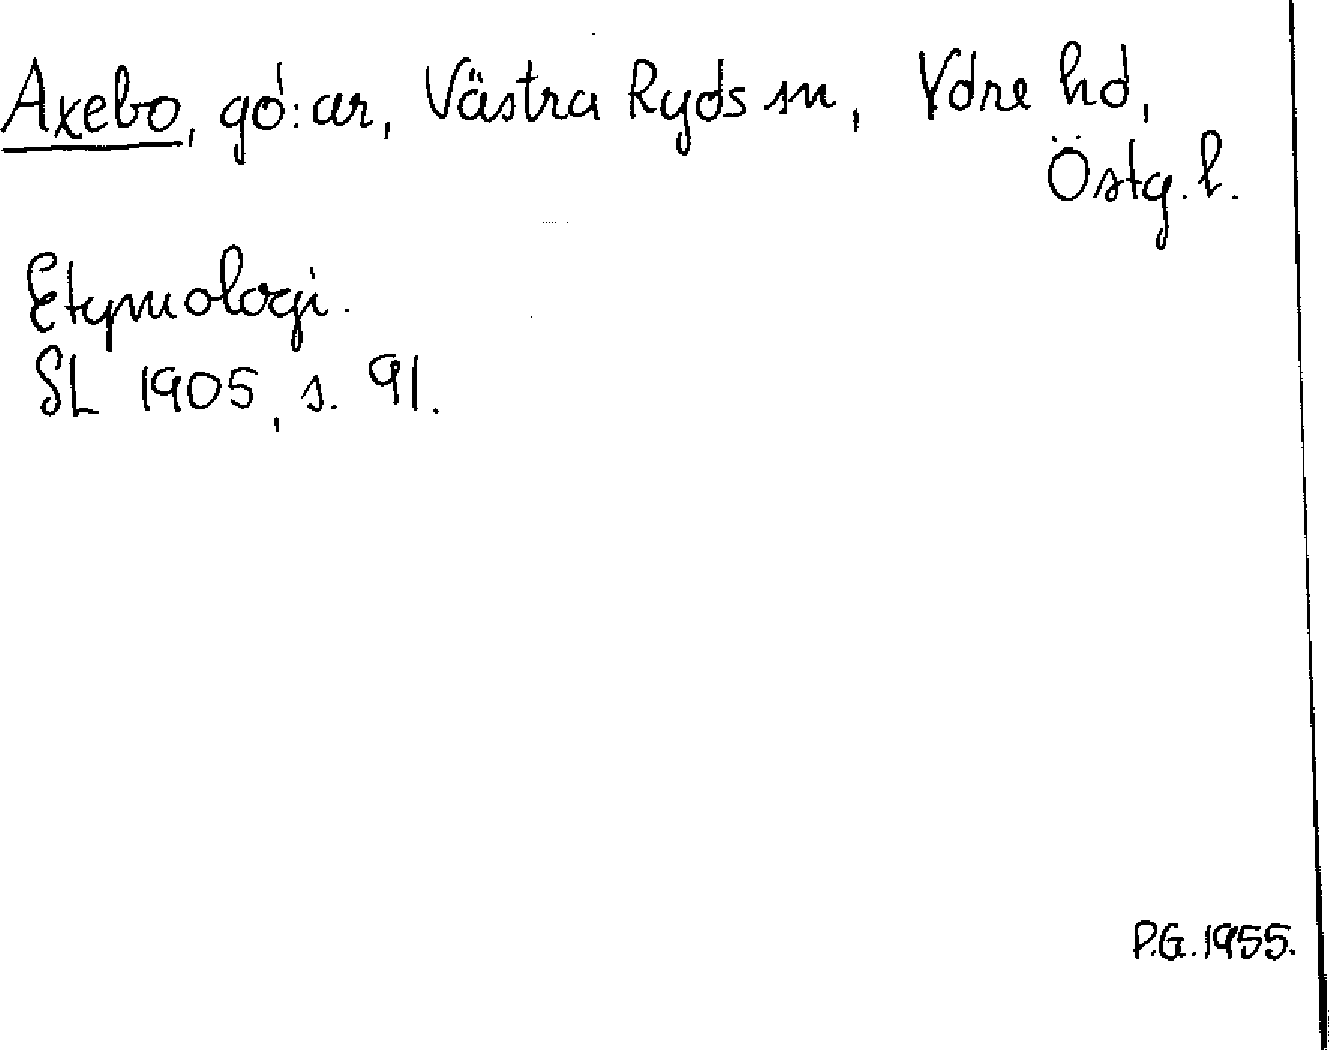 Axebo, gd:ar, Västra Ryds sn, Ydre hd,
Östg. l.
Etymologi.
SL 1905, s. 91.
P.G. 1955.